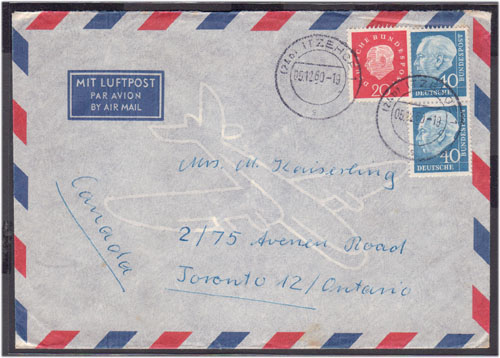 MIT LUFTPOST
PAR AVION
BY AIR MAIL
(24b) ITZEHOE
06.12.60-19
DEUTSCHE BUNDESPOST
20
BUNDESPOST
40
DEUTSCHE
06.12.60-19
BUNDESPOST
40
DEUTSCHE
Mrs. M. Kaiserling
2/75 Avenue Road
Toronto 12/Ontario
Canada